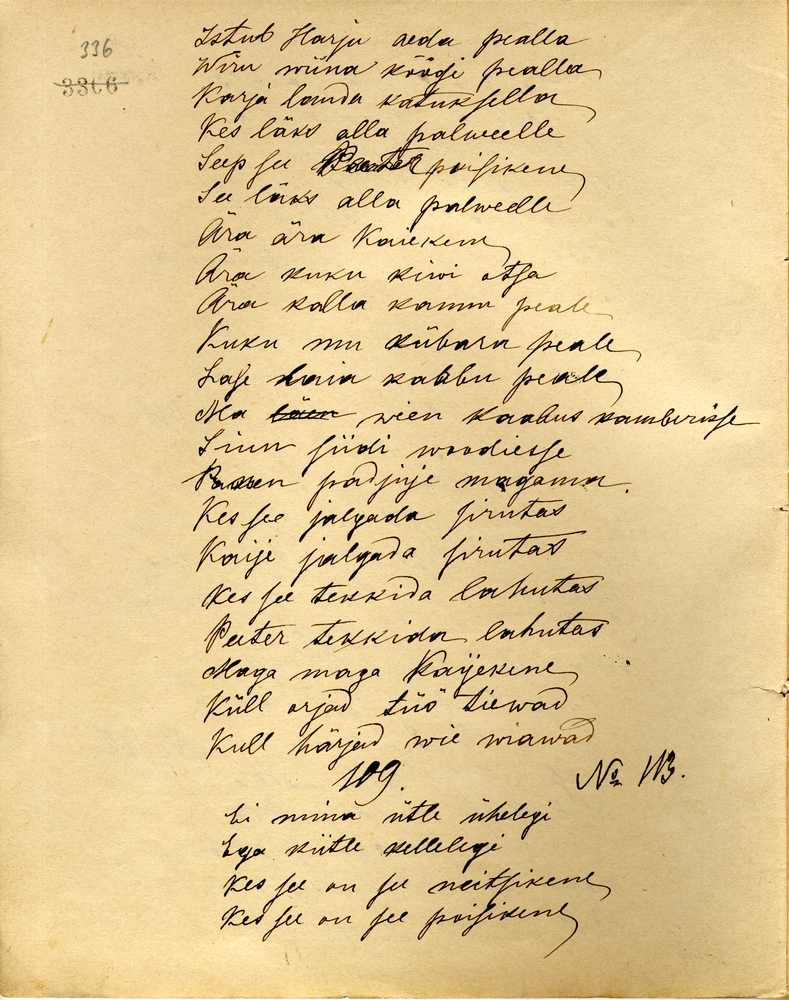 336
3306
Istub Harju aeda pealla
Wiru wiina köögi pealla
Karja lauda katuksella
Kes läks alla palweelle
Seep see Peeter poisikene
See läks alla palweelle
Ära ära Kaiekene
Ära kuku kiwi otsa
Ära kalla kannu peale
Kuku mu kübara peale
Lase laia kabbu peale
Ma läen wien kaabus kamberisse
Sinu siidi woodiesse
Panen padjuje magama.
Kes see jalgada sirutas
Kaije jalgada sirutas
Kes see tekkida lahutas
Peeter tekkida lahutas
Maga maga Kaijekene
Küll orjad töö tiewad
Kull härjad wie wiawad
109. No 113.
Ei mina ütle ühelegi
Ega kiitle kellelegi
Kes see on see neitsikene
Kes see on see poisikene